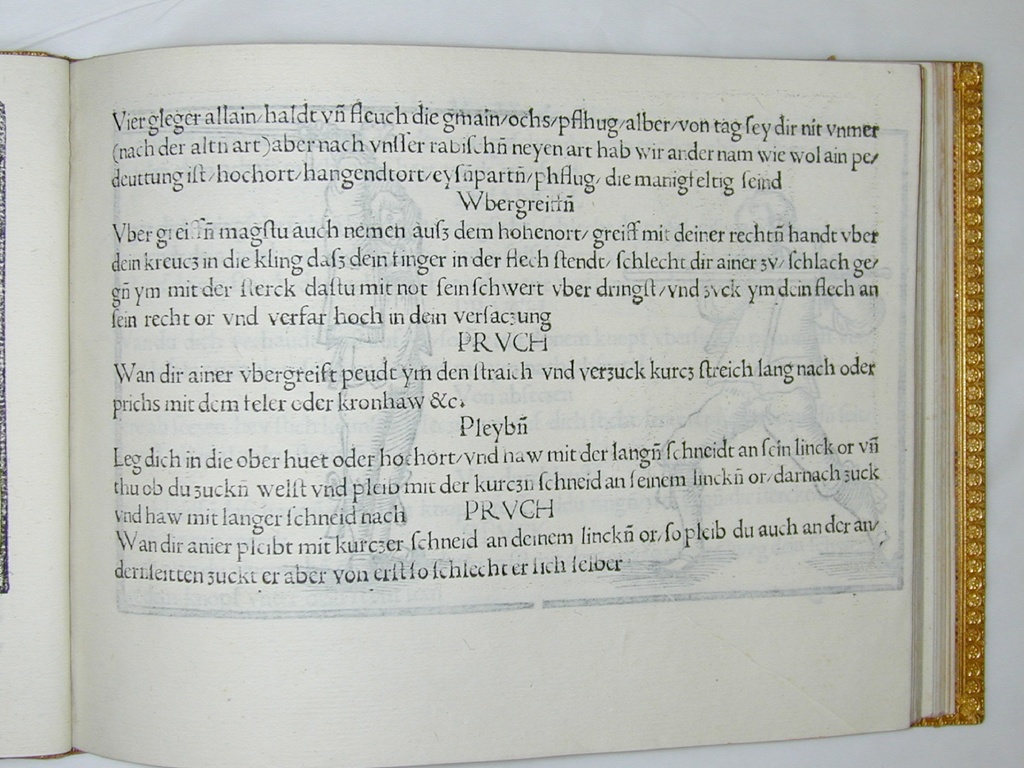 Vier gleger allain/haldt vn̄ fleuch die gmain/ochs/pflhug/alber/von tag sey dir nit vnmer
(nach der altn art) aber nach vnsser rabischn̄ neyen art hab wir ander nam wie wol ain pe/
deuttung ist/hochort/hangendtort/eysn̄partn̄/phflug/ die manigfeltig seind
Wbergreiffn̄
Vbergreiffn̄ magstu auch nemen ausz dem hohenort/greiff mit deiner rechtn̄ handt vber
dein kreucz in die kling dasz dein finger in der flech stendt/ schlecht dir ainer zv/ schlach ge/
gn̄ ym mit der sterck dastu mit not sein schwert vber dringst/vnd zvck ym dein flech an
sein recht or vnd verfar hoch in dein versaczung
PRVCH
Wan dir ainer vbergreift peudt ym den straich vnd verzuck kurcz streich lang nach oder
prichs mit dem feler oder kronhaw &c.
Pleybn̄
Leg dich in die ober huet oder hochort/vnd haw mit der langn̄ schneidt an sein linck or vn̄
thu ob du zuckn̄ welst vnd pleib mit der kurczn schneid an seinem linckn̄ or/darnach zuck
vnd haw mit langer schneid nach PRVCH
Wan dir anier pleibt mit kurczer schneid an deinem linckn̄ or, so pleib du auch an der an/
dern seitten zuckt er aber von erst so schlecht er sich selber